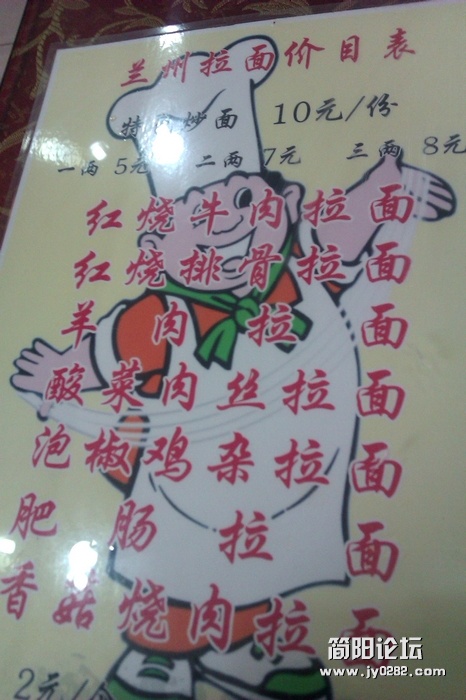 兰州拉面价目表
特色炒面 10元/份
一两 5元 二两 7元 三两 8元
红烧牛肉拉面
红烧排骨拉面
羊肉拉面
酸菜肉丝拉面
泡椒鸡杂拉面
肥肠拉面
香菇烧肉拉面
2元/
简阳论坛
www.jy0282.com